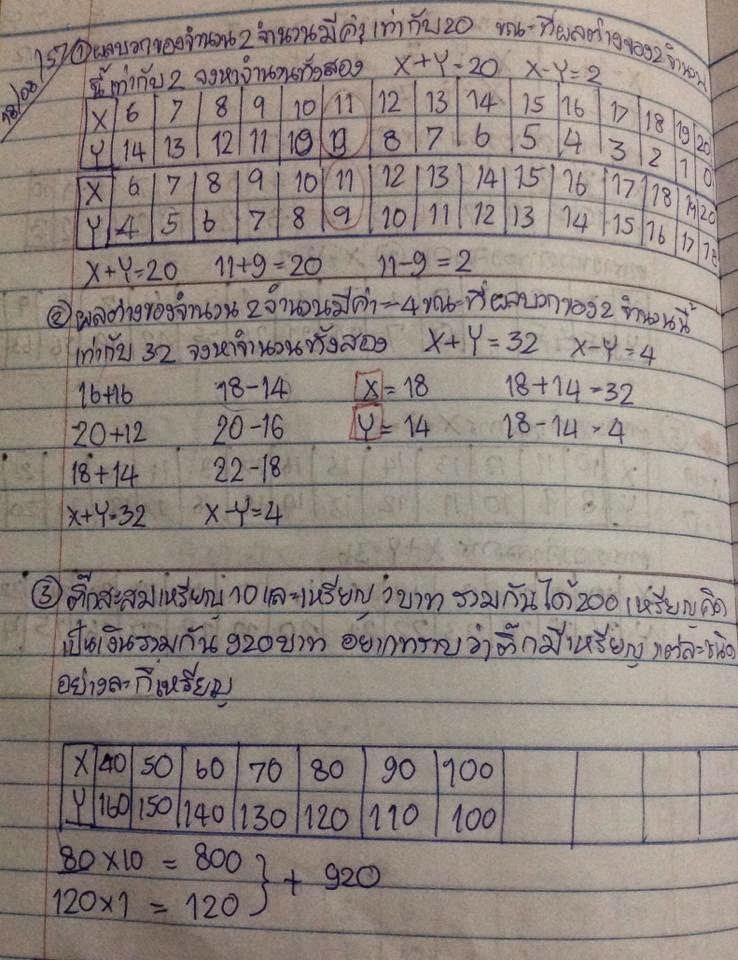 18/08/57
① ผลบวกของจำนวน 2 จำนวนมีค่าเท่ากับ 20 ขณะที่ผลต่างของ 2 จำนวน
นี้เท่ากับ 2 จงหาจำนวนทั้งสอง X+Y=20 X-Y=2
X 6 7 8 9 10 11 12 13 14 15 16 17 18 19 20
Y 14 13 12 11 10 9 8 7 6 5 4 3 2 1 0
X 6 7 8 9 10 11 12 13 14 15 16 17 18 19 20
Y 4 5 6 7 8 9 10 11 12 13 14 15 16 17 18
X+Y=20 11+9=20 11-9=2
② ผลต่างของจำนวน 2 จำนวนมีค่า=4 ขณะที่ผลบวกของ 2 จำนวนนี้
เท่ากับ 32 จงหาจำนวนทั้งสอง X+Y=32 X-Y=4
16+16 18-14 X=18 18+14=32
20+12 20-16 Y=14 18-14=4
18+14 22-18
X+Y=32 X-Y=4
③ ติ๊กสะสมเหรียญ 10 และเหรียญ 1 บาท รวมกันได้ 200 เหรียญคิด
เป็นเงินรวมกัน 920 บาท อยากทราบว่าติ๊กมีเหรียญแต่ละชนิด
อย่างละกี่เหรียญ
X 40 50 60 70 80 90 100
Y 160 150 140 130 120 110 100
80×10 = 800 } + 920
120×1 = 120